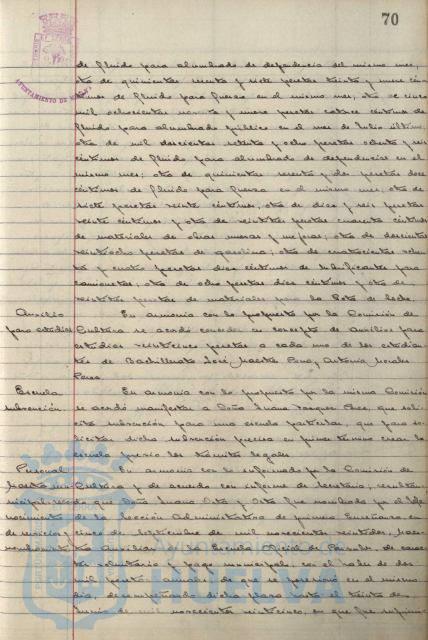 70
AYUNTAMIENTO DE
de fluido para alumbrado de dependencia del mismo mes,
otra de quinientas sesenta y siete pesetas treinta y nueve cén-
timos de fluido para fuerza en el mismo mes, otra de cinco
mil ochocientas noventa y nueve pesetas catorce céntimos de
fluido para alumbrado público en el mes de Julio último,
otra de mil doscientas setenta y ocho pesetas ochenta y seis
céntimos de fluido para alumbrado de dependencias en el
mismo mes; otra de quinientas sesenta y dos pesetas doce
céntimos de fluido para fuerza en el mismo mes, otra de
siete pesetas veinte céntimos, otra de diez y seis pesetas
veinte céntimos y otra de veintitres pesetas cuarenta céntimos
de materiales de obras nuevas y mejoras; otra de doscientas
veintiocho pesetas de gasolina; otra de cuatrocientas
y cuatro pesetas diez céntimos de lubricantes para
camionetas; otra de ocho pesetas diez céntimos y otra de
veintitres pesetas de materiales para la Gota de leche.
Auxilio
para estudios
En armonía con lo propuesto por la Comisión de
Cultura se acordó conceder en concepto de Auxilios para
estudios veinticinco pesetas a cada uno de los estudian-
tes de Bachillerato José Maestre Pena, Antonio Morales
Perea.
Escuela
subvención
En armonía con lo propuesto por la misma Comisión
se acordó manifestar a Doña Juana Vazquez Perez, que soli-
cita subvención para una escuela particular, que para so-
licitar dicha subvención precisa en primer término crear la
escuela previo los trámites legales
Personal
Maestra mu-
nicipal reco-
nocimiento
de servicios y
nombramiento
En armonía con lo informado por la Comisión de
Cultura y de acuerdo con informe de Secretario, resultan-
do que Doña Juana Orta y Orta fue nombrada por el Jefe
de la Sección Administrativa de primera Enseñanza en
cinco de Septiembre de mil novecientos veintidos, Maes-
tra Auxiliar de la Escuela Oficial de Párvulos, de carac-
ter voluntario y pago municipal, con el haber de dos
mil pesetas anuales, de que se posesionó en el mismo
dia, desempeñando dicha plaza hasta el treinta de
Junio de mil novecientos veinticinco, en que fue suprimi-
Ayuntamiento de
HUELVA